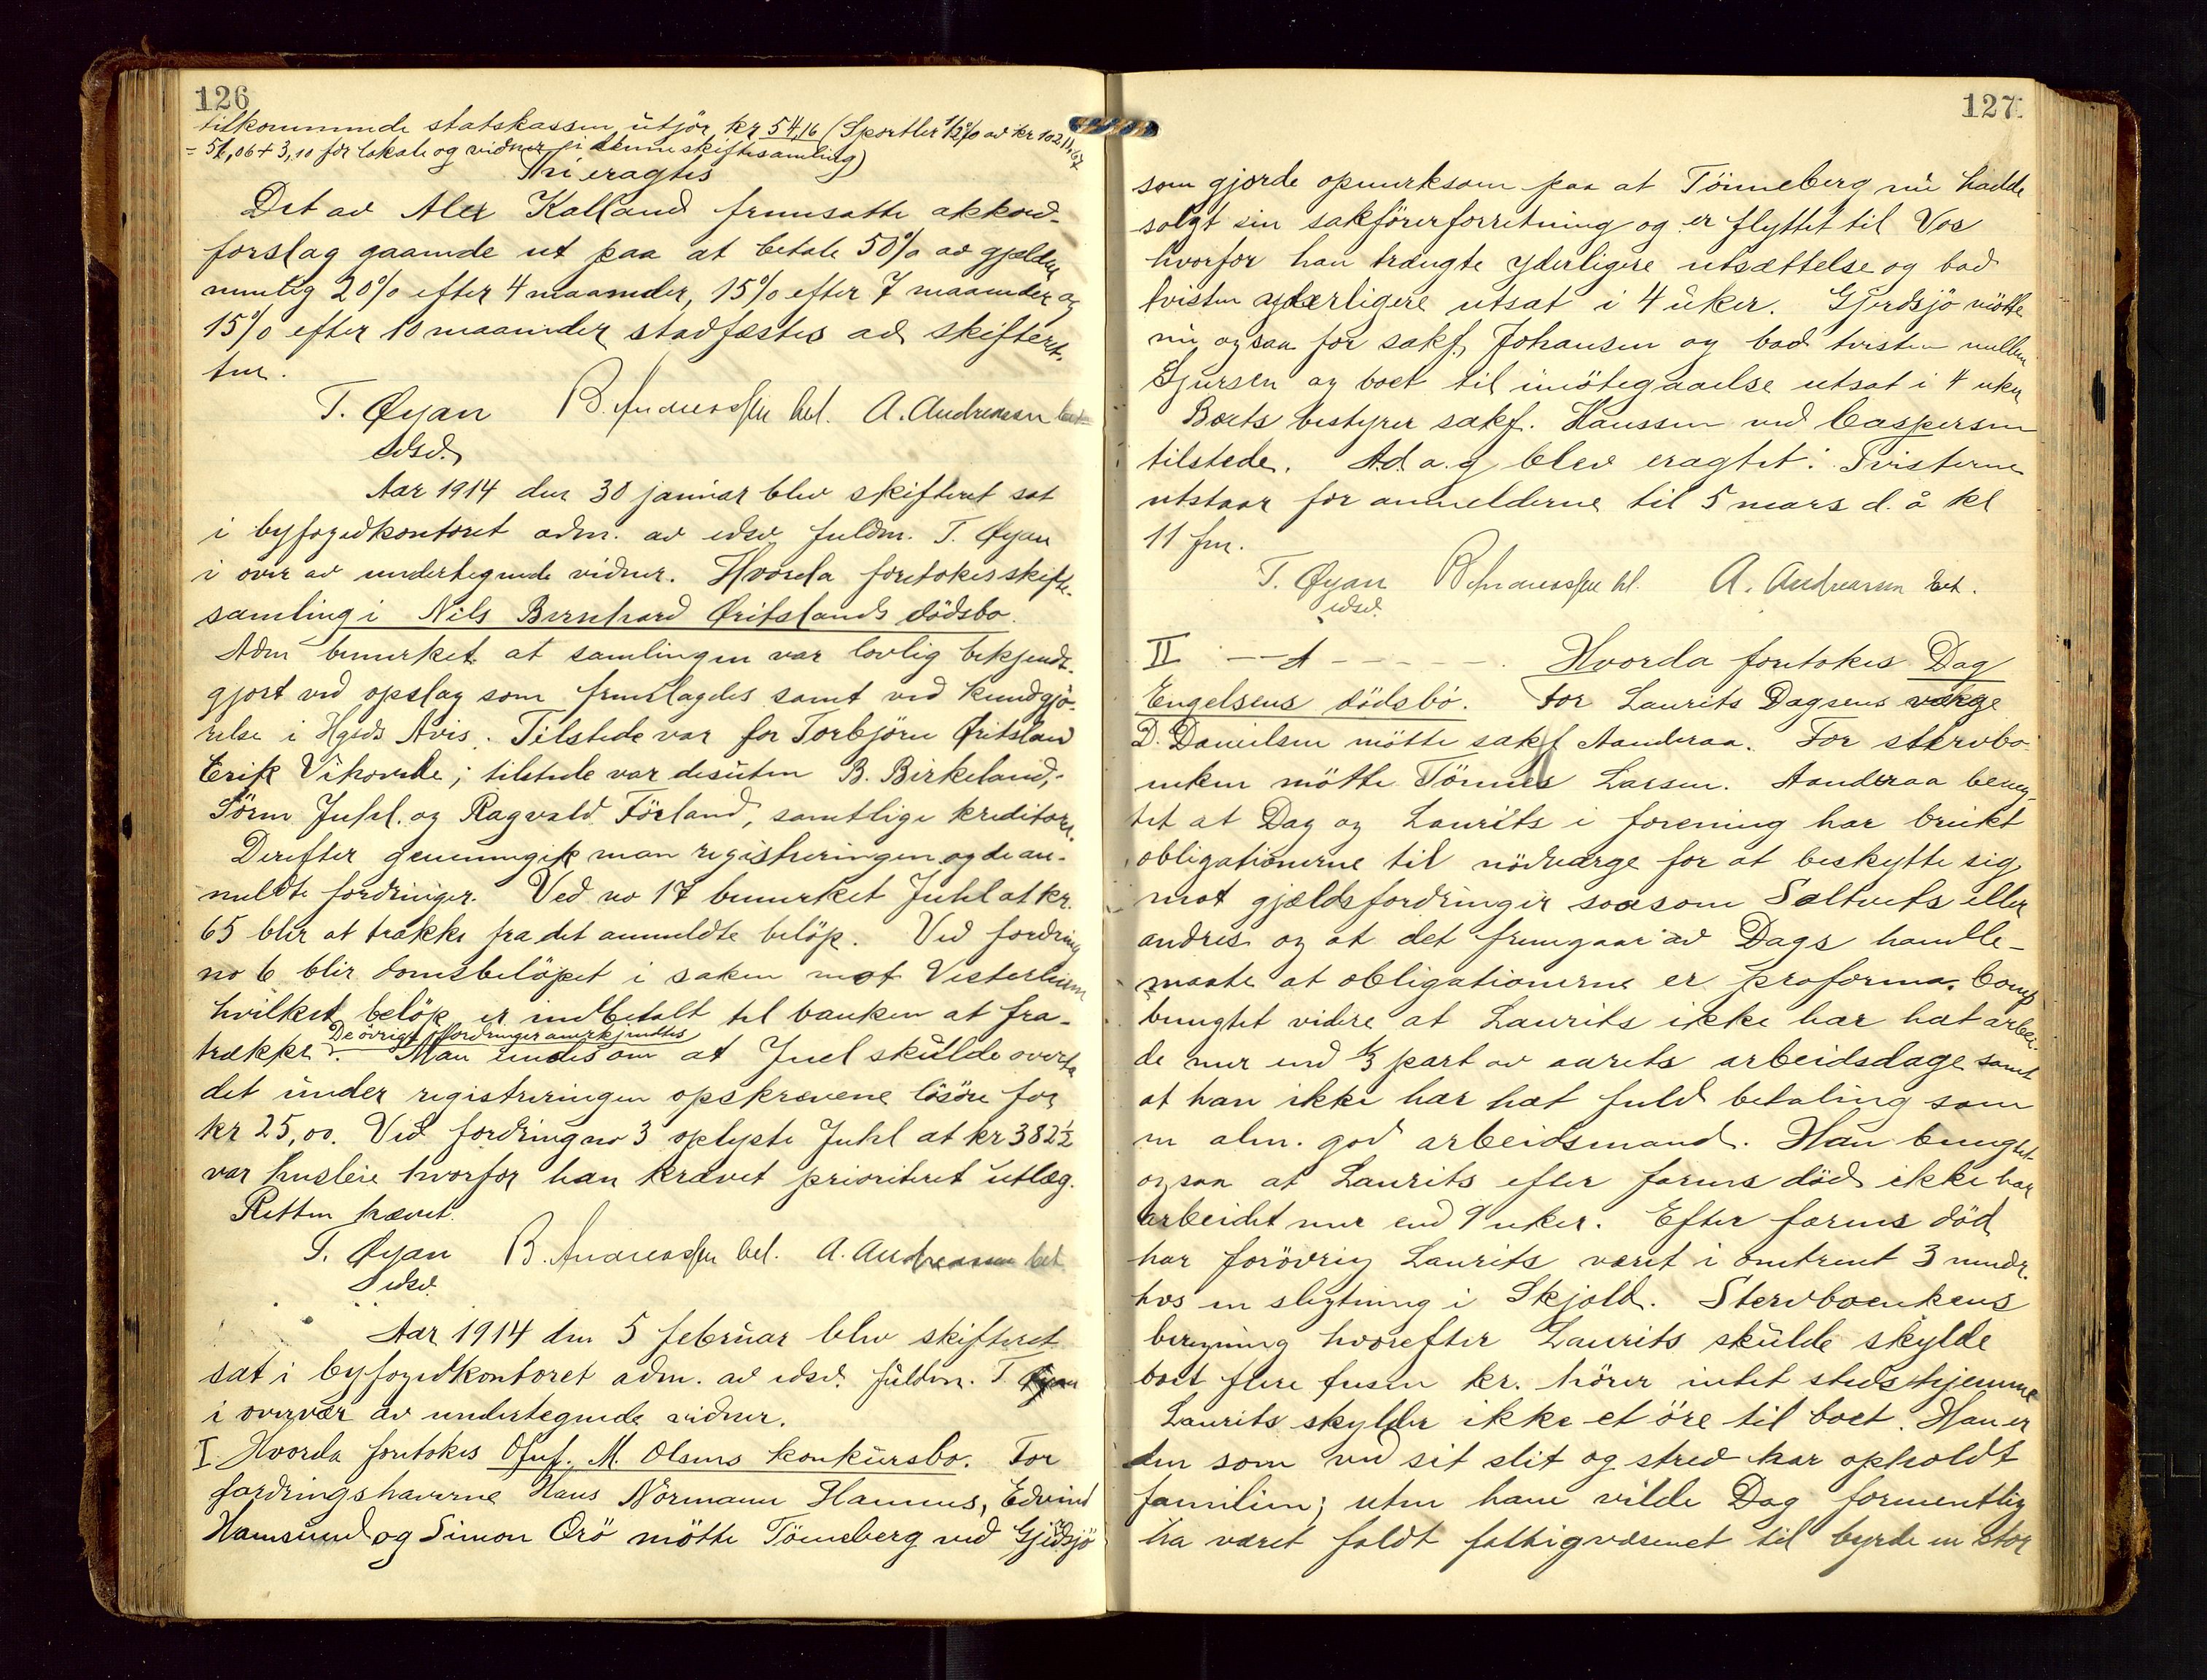 126
tilkommende statskassen utgjør kr 54,16 (Sportler 1/2 % av kr 10211,67
= 51,06 + 3,10 for lokale og vidner i denne skiftesamling)
Ti eragtes
Det av Alex Kalland fremsatte akkord-
forslag gaaende ut paa at betale 50% av gjælden
nemlig 20% efter 4 maaneder, 15% efter 7 maaneder og
15% efter 10 maaneder stadfæstes av skifteret-
ten.
T. Øyan B. Andreassen bet. A. Andreassen bet
edsv.
Aar 1914 den 30 januar blev skifteret sat
i byfogedkontoret adm. av edsv. fuldm. T. Øyan
i over av undertegnede vidner. Hvorda foretokes skifte-
samling i Nils Bernhard Øritslands dödsbo.
Adm bemerket at samlingen var lovlig bekjendt-
gjort ved opslag som fremlagdes samt ved kundgjö-
relse i Hgsds Avis. Tilstede var for Torbjörn Øritsland
Erik Vikovde; tilstede var desuten B. Birkeland,
Sörm Juhl. og Ragvald Förland, samtlige kreditorer.
Derefter gjennemgik man registreringen og de an-
meldte fordringer. Ved no 17 bemerket Juhl at kr.
65 blir at trække fra det anmeldte belöp. Ved fordring
no 6 blir domsbelöpet i saken mot Vesterheim
hvilket belöp er indbetalt til banken at fra-
De övrige fordringer anerkjendtes
trække. Man enedes om at Juel skulde overta
det under registreringen opskrevne lösöre for
kr 25,00. Ved fordring no 3 oplyste Juhl at kr 382 1/2
var husleie hvorfor han krævet prioritert utlæg.
Retten hævet.
T. Øyan B. Andreassen bet. A. Andreassen bet
edsv.
Aar 1914 den 5 februar blev skifteret
sat i byfogedkontoret adm. av edsv. fuldm. T. Øyan
i overvær av undertegnede vidner.
I. Hvorda foretokes Oluf. M. Olsens konkursbo. For
fordringshaverne Hans Normann Hannus, Edvind
Hamsund og Simon Orö mötte Tönneberg ved Gjerdsjö
127
som gjorde opmerksom paa at Tönneberg nu hadde
solgt sin sakförerforretning og er flyttet til Vos
hvorfor han trængte yderligere utsættelse og bad
tvisten yderligere utsat i 4 uker. Gjerdsjö mötte
nu ogsaa for sakf. Johansen og bad tvisten mellem
Sjursen og boet til imötegaaelse utsat i 4 uker
Boets bestyrer sakf. Haussen ved Caspersen
tilstede. Ad a.g blev eragtet: Tvisterne
utstaar for anmelderne til 5 mars d. å kl
11 fm.
T. Øyan B. Andreassen bet. A. Andreassen bet.
edsv.
II — A — — — — —. Hvorda foretokes Dag
Engelsens dödsbo. For Laurits Dagsens værge
D. Danielsen mötte sakf Aanderaa. For stervbo-
enken mötte Tönnes Larsen. Aanderaa beneg-
tet at Dag og Laurits i forening har brukt
obligationerne til nödværge for at beskytte sig
mot gjældsfordringer saasom Saltveits eller
andres og at det fremgaar av Dags handle-
maate at obligationerne er proforma. Comp
benegtet videre at Laurits ikke har hat arbei-
de mer end 1/3 part av aarets arbeidsdage samt
at han ikke har hat fuld betaling som
en alm. god arbeidsmand. Han benegtet
ogsaa at Laurits efter farens död ikke har
arbeidet mer end 9 uker. Efter farens död
har forövrig Laurits været i omtrent 3 mndr.
hos en slegtning i Skjold. Stervboenkens
beregning hvorefter Laurits skulde skylde
boet flere tusen kr. hörer intet steds hjemme
Laurits skylder ikke et öre til boet. Han er
den som ved sit slit og stred har opholdt
familien; uten ham vilde Dag formentlig
ha været faldt fattigvæsenet til byrde en stor